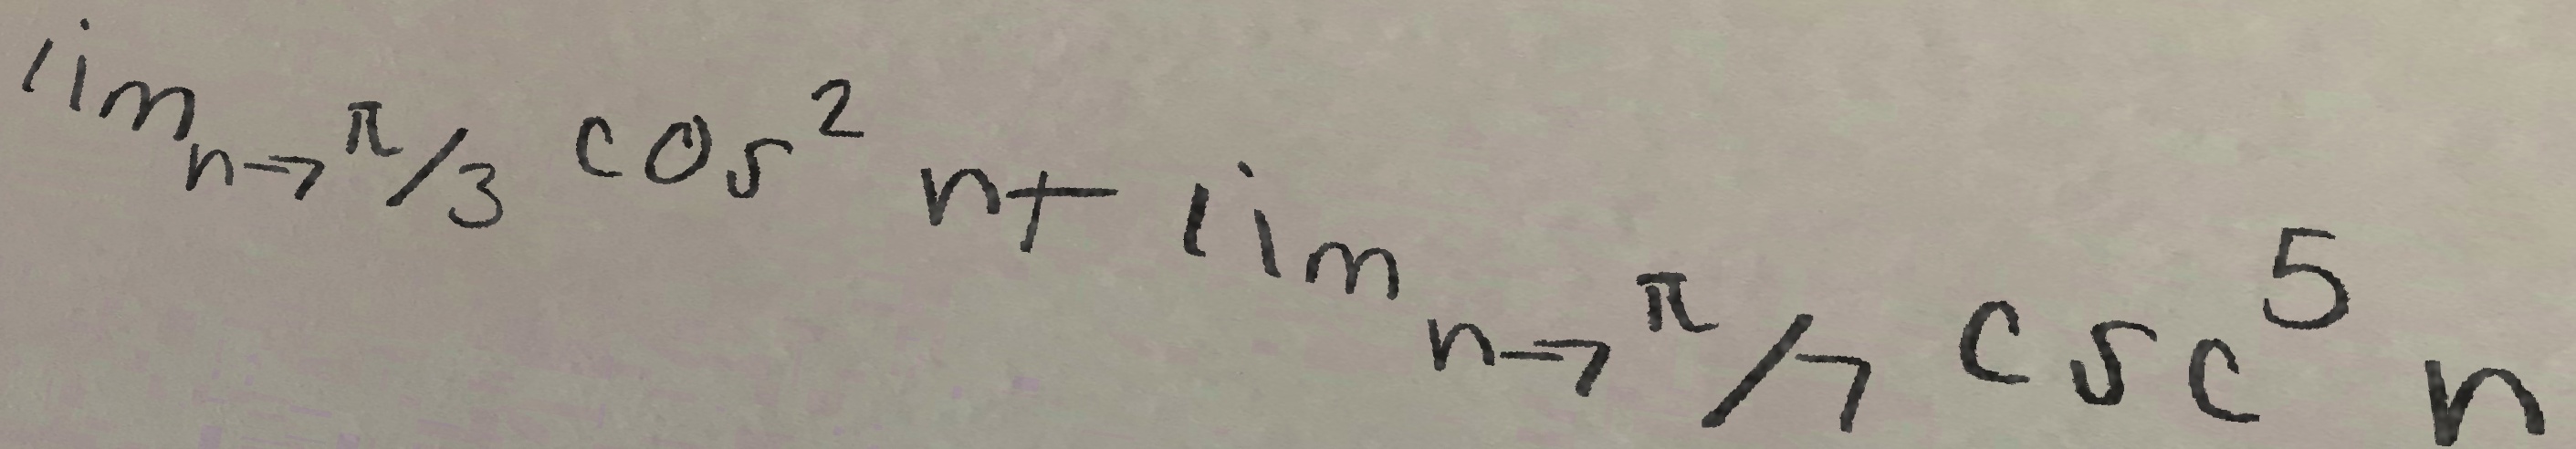 lim_{n→π/3} cos² n + lim_{n→π/7} csc⁵ n